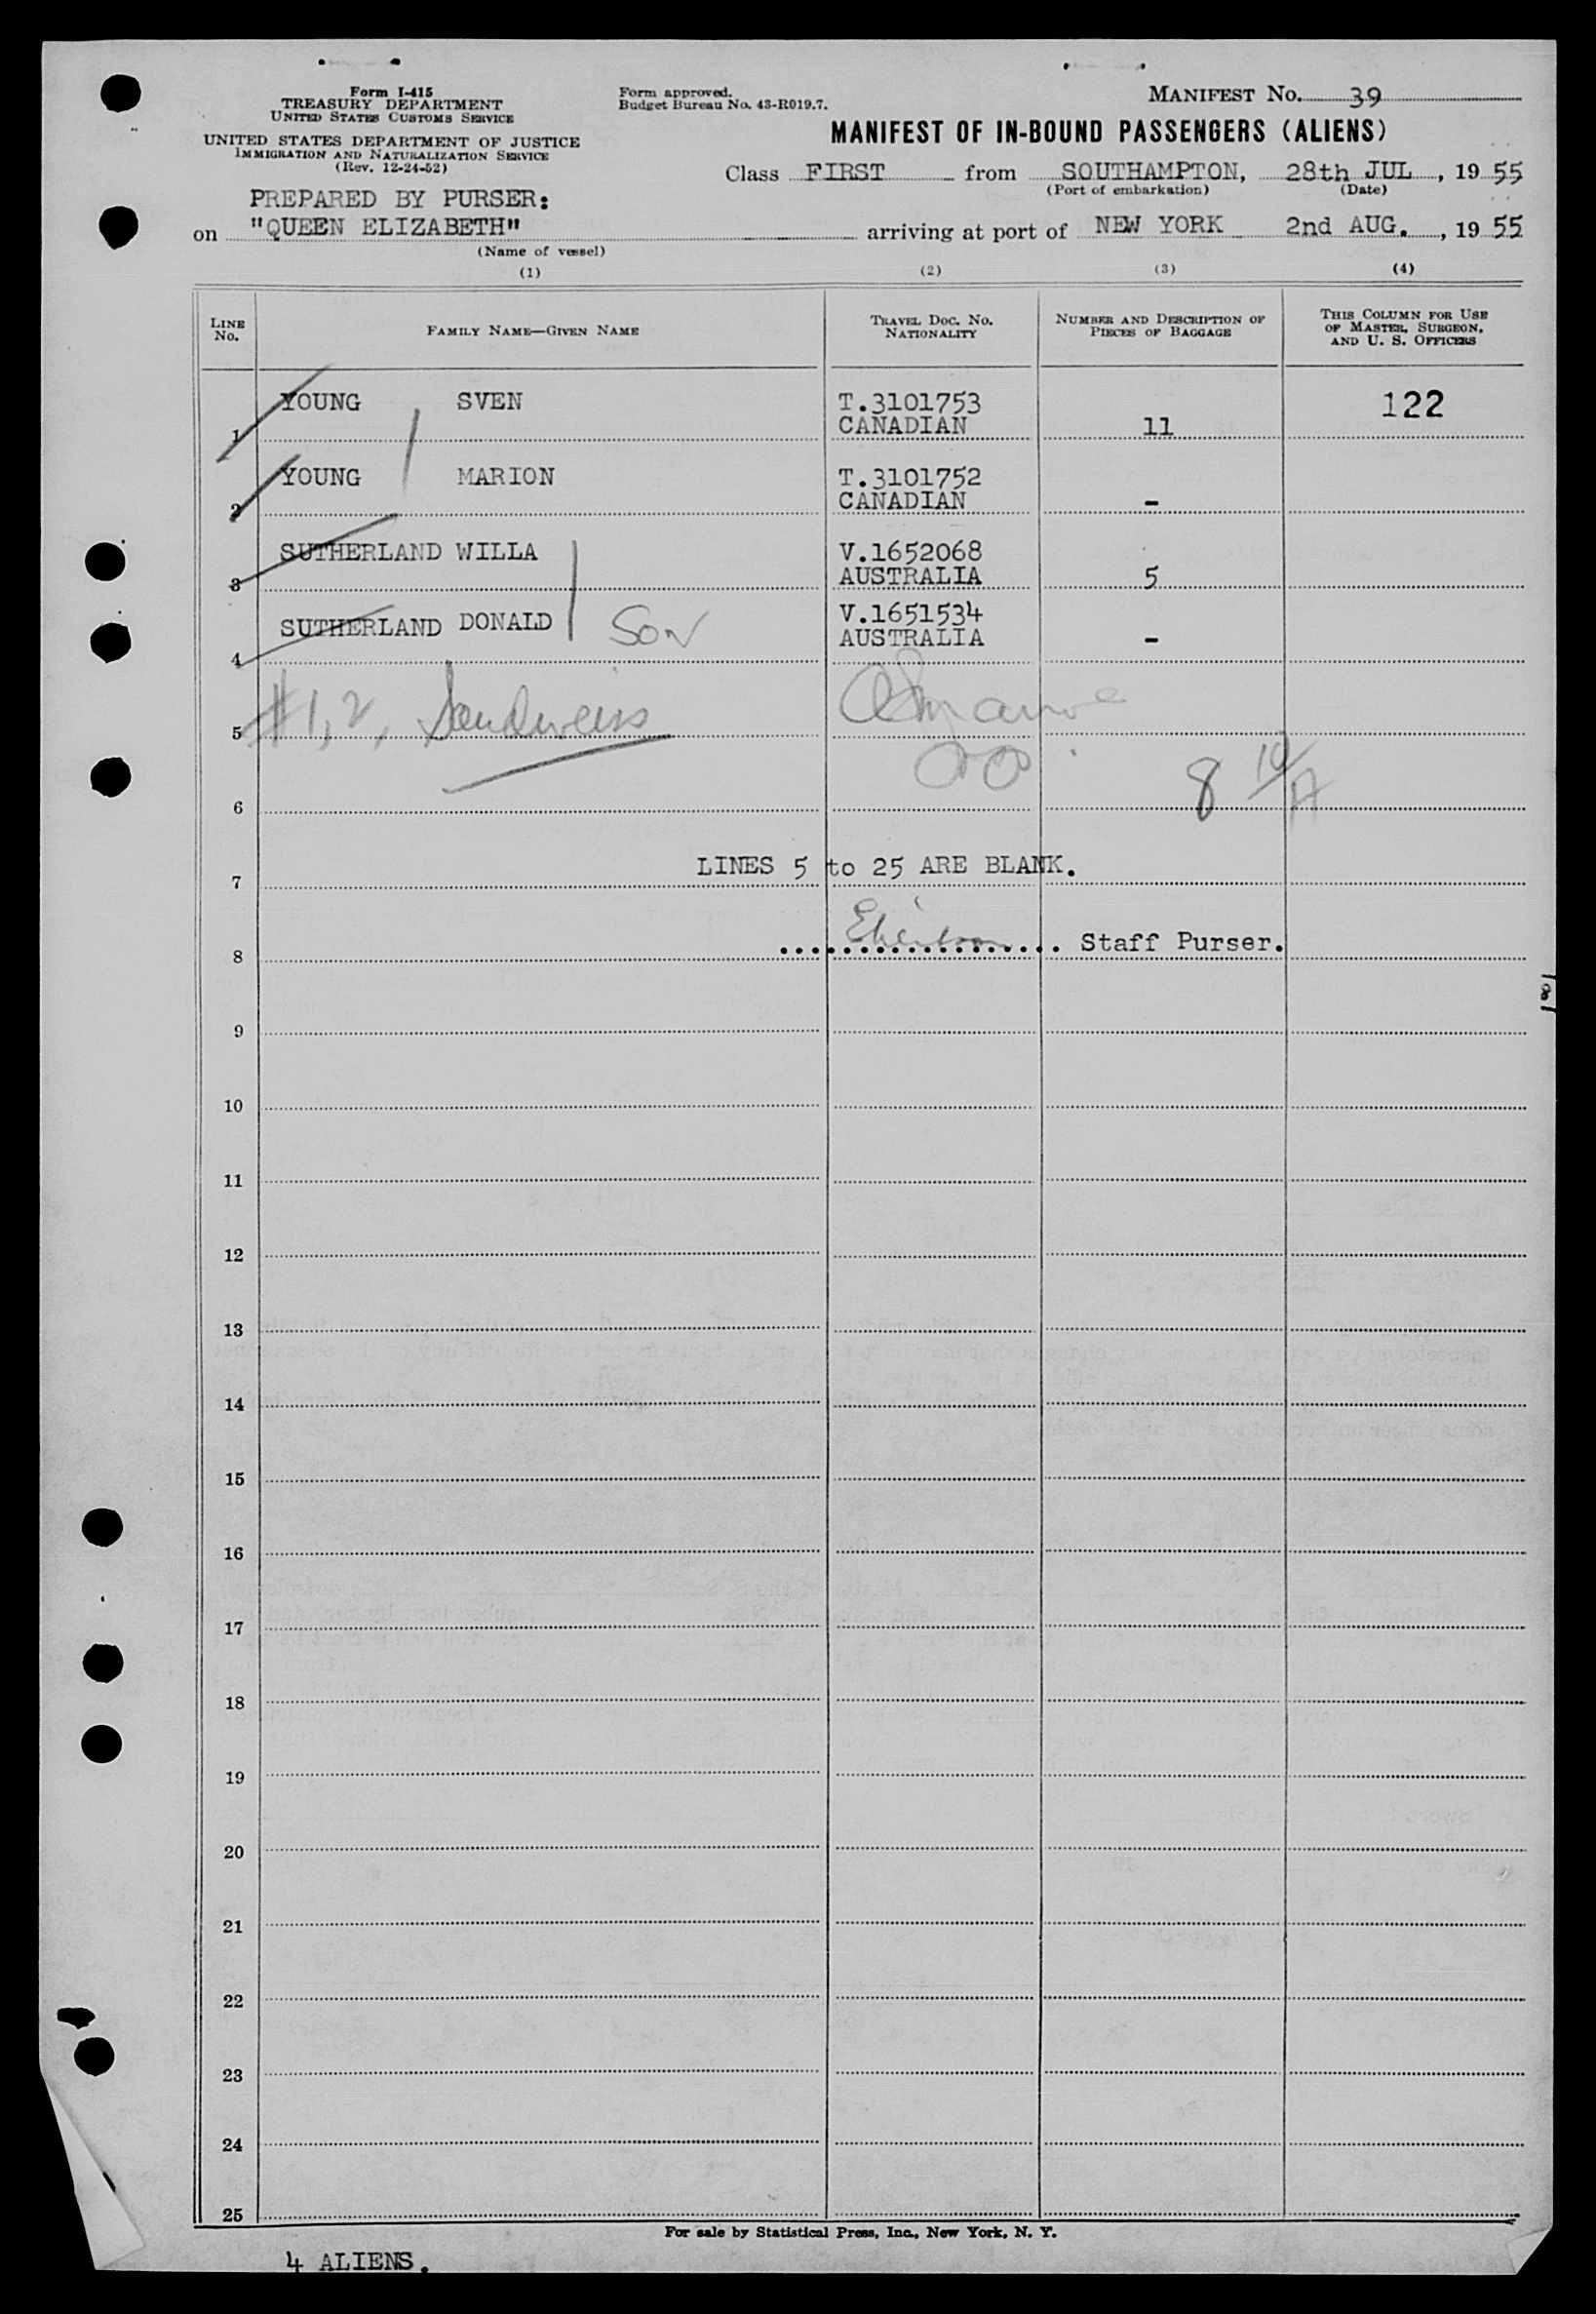 Form I-415
TREASURY DEPARTMENT
UNITED STATES CUSTOMS SERVICE
UNITED STATES DEPARTMENT OF JUSTICE
IMMIGRATION AND NATURALIZATION SERVICE
(Rev. 12-24-52)
Form approved.
Budget Bureau No. 43-R019.7.
MANIFEST NO. 39
MANIFEST OF IN-BOUND PASSENGERS (ALIENS)
Class FIRST from SOUTHAMPTON, 28th JUL, 1955
(Port of embarkation) (Date)
PREPARED BY PURSER:
on "QUEEN ELIZABETH" arriving at port of NEW YORK 2nd AUG., 1955
(Name of vessel)
(1) (2) (3) (4)
LINE NO. FAMILY NAME—GIVEN NAME TRAVEL DOC. NO. NATIONALITY NUMBER AND DESCRIPTION OF PIECES OF BAGGAGE THIS COLUMN FOR USE OF MASTER, SURGEON, AND U. S. OFFICERS
YOUNG SVEN T.3101753 122
1 CANADIAN 11
YOUNG MARION T.3101752
2 CANADIAN -
SUTHERLAND WILLA V.1652068
3 AUSTRALIA 5
SUTHERLAND DONALD Son V.1651534
4 AUSTRALIA -
5 #1, 2, Sandweiss
6 8 10/A
7 LINES 5 to 25 ARE BLANK.
8 Staff Purser.
9
10
11
12
13
14
15
16
17
18
19
20
21
22
23
24
25
For sale by Statistical Press, Inc., New York, N. Y.
4 ALIENS.